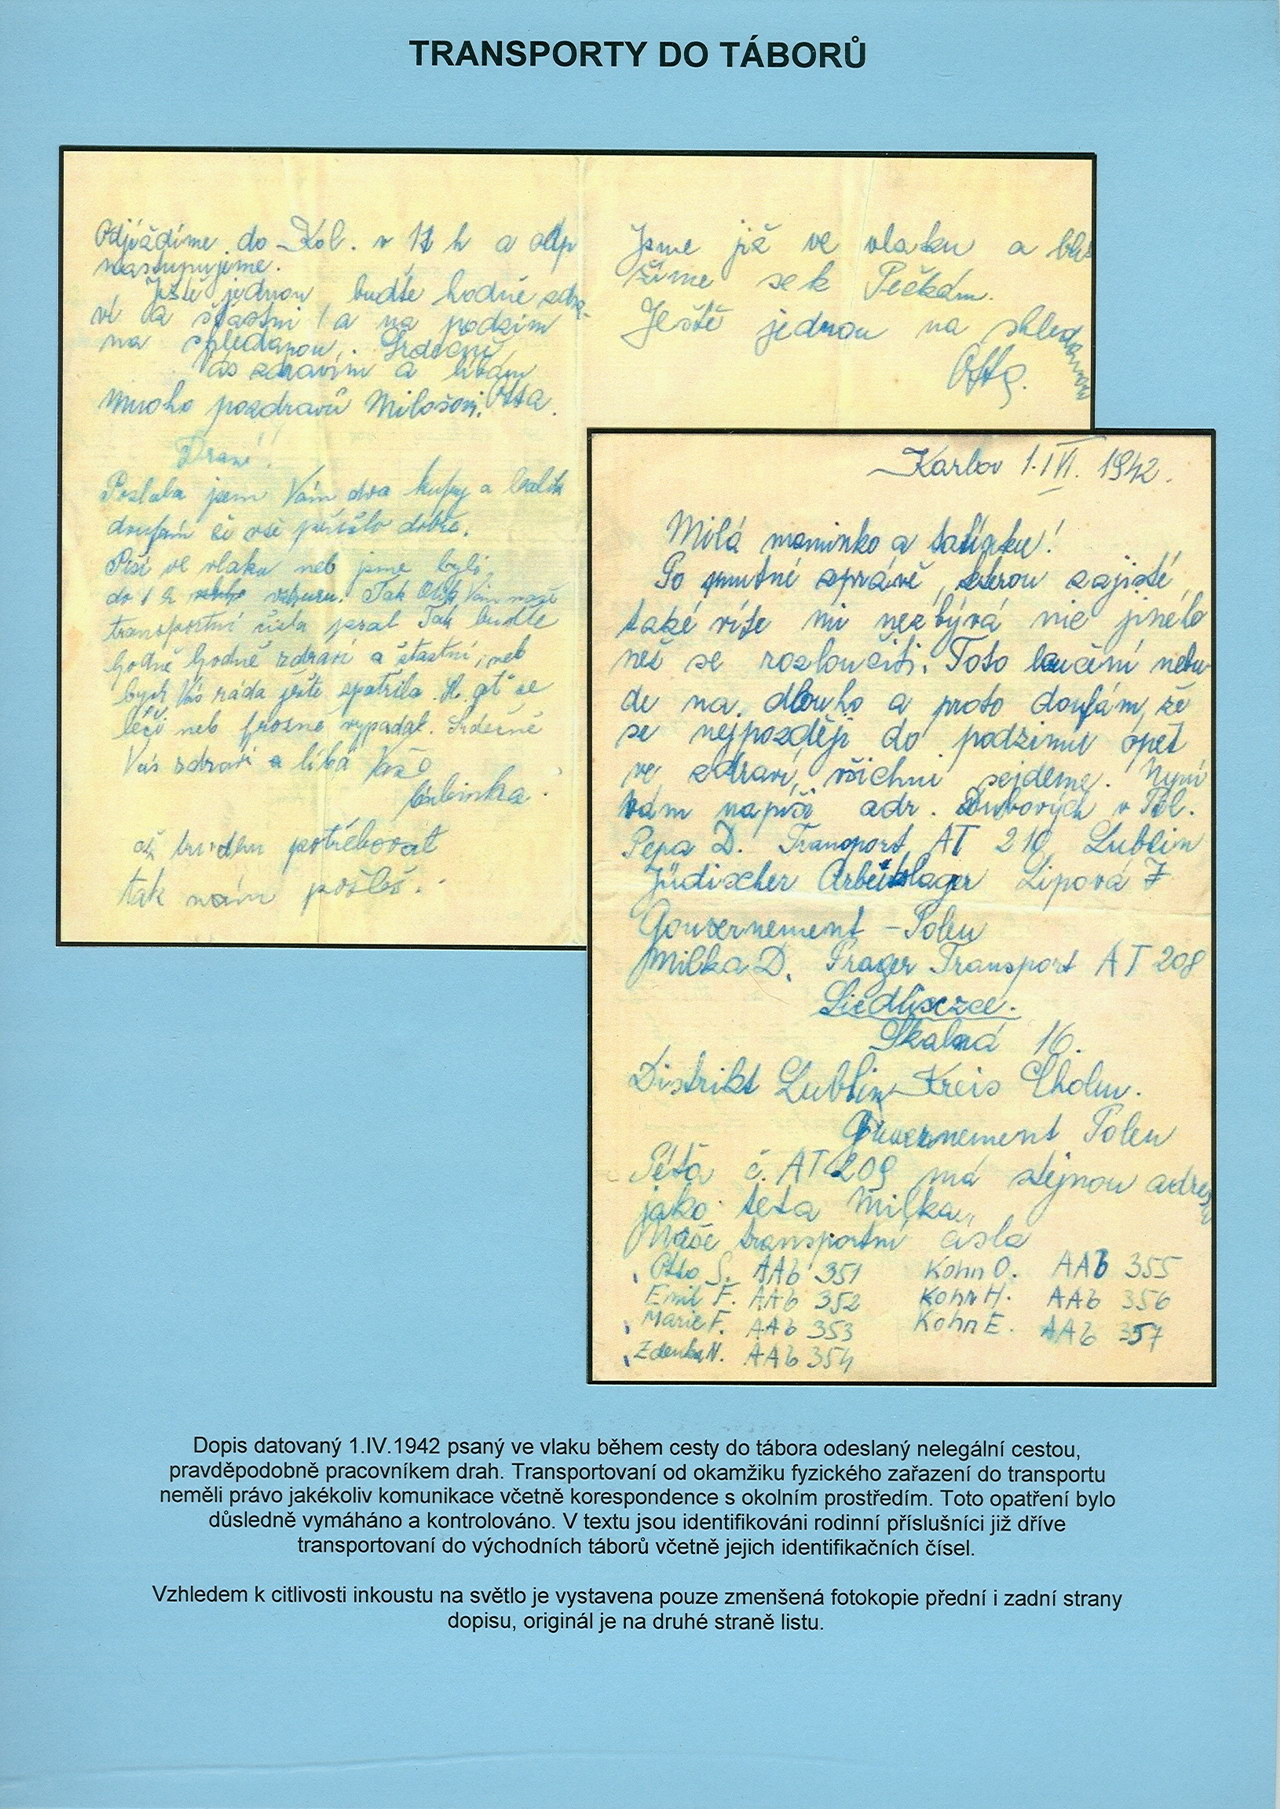 TRANSPORTY DO TÁBORŮ
Odjíždíme do Kol. v 11 h a odp
nastupujeme.
Ještě jednou buďte hodně zdra-
ví a šťastni a na podzim
na shledanou. Srdečně
Vás zdravím a líbám
Mnoho pozdravů Milošovi. Otta.
Drazí!
Poslala jsem Vám dva kufry a balík
doufám že vše přišlo dobře.
Píši ve vlaku neb jsme byli
do 1 h vzhuru. Tak Vám naše
transportní čísla psal Tak buďte
hodně hodně zdraví a šťastní, neb
bych Vás ráda ještě spatřila. ať se
léčí neb hrozně vypadal. Srdečně
Vás zdraví a líbá Vaše
až budem potřebovat
tak nám pošleš.
Jsme již ve vlaku a blí
žíme se k Pečkám.
Ještě jednou na shledanou
Otta.
Karlov 1.IV. 1942.
Milá maminko a tatínku!
Po smutné zprávě, kterou zajisté
také víte mi nezbývá nic jiného
než se rozloučiti. Toto loučení nebu
de na dlouho a proto doufám, že
se nejpozději do podzimu opět
ve zdraví, všichni sejdeme. Nyní
vám napíši adr. Dubových v Pol.
Pepa D. Transport AT 210 Lublin
Jüdischer Arbeitslager Lipová 7
Gouvernement - Polen
Milka D. Prager Transport AT 208
Siedliszcze.
Skalná 16.
Distrikt Lublin Kreis Cholm.
Gouvernement Polen
Péťa č. AT 209 má stejnou adres
jako teta Milka.
Naše transportní čísla
Otto S. AAb 351 Kohn O. AAb 355
Emil F. AAb 352 Kohn H. AAb 356
Marie F. AAb 353 Kohn E. AAb 357
Zdenka N. AAb 354
Dopis datovaný 1.IV.1942 psaný ve vlaku během cesty do tábora odeslaný nelegální cestou,
pravděpodobně pracovníkem drah. Transportovaní od okamžiku fyzického zařazení do transportu
neměli právo jakékoliv komunikace včetně korespondence s okolním prostředím. Toto opatření bylo
důsledně vymáháno a kontrolováno. V textu jsou identifikováni rodinní příslušníci již dříve
transportovaní do východních táborů včetně jejich identifikačních čísel.
Vzhledem k citlivosti inkoustu na světlo je vystavena pouze zmenšená fotokopie přední i zadní strany
dopisu, originál je na druhé straně listu.